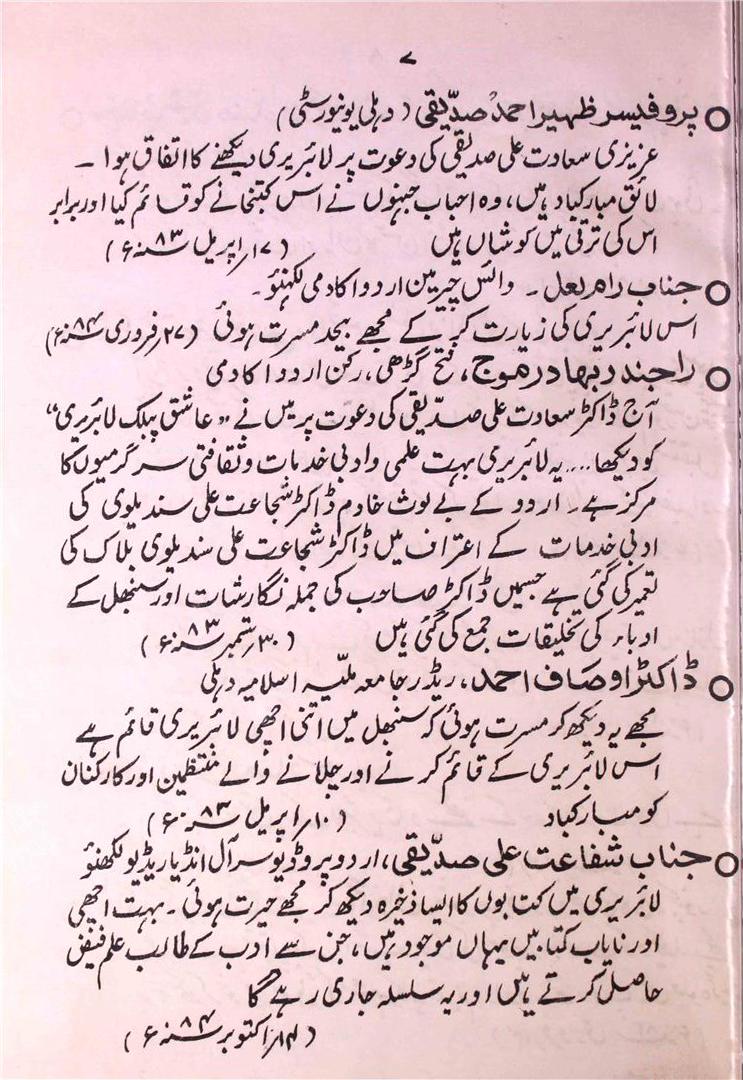 ۷
پروفیسر ظہیر احمد صدّیقی (دہلی یونیورسٹی)
عزیزی سعادت علی صدیقی کی دعوت پر لائبریری دیکھنے کا اتفاق ہوا ۔
لائق مبارکباد ہیں، وہ احباب جنہوں نے اس کتبخانے کو قائم کیا اور برابر
اس کی ترقی میں کوشاں ہیں (۱۷؍اپریل ۸۳ء)
جناب رام لعل ۔ وائس چیرمین اردو اکادمی لکھنؤ۔
اس لائبریری کی زیارت کر کے مجھے بیحد مسرت ہوئی (۲۷؍فروری ۸۴ء)
راجندر بہادر موج، فتح گڑھی، رکن اردو اکادمی
آج ڈاکٹر سعادت علی صدّیقی کی دعوت پر میں نے "عاشق پبلک لائبریری"
کو دیکھا.... یہ لائبریری بہت علمی و ادبی خدمات و ثقافتی سرگرمیوں کا
مرکز ہے۔ اردو کے بے لوث خادم ڈاکٹر شجاعت علی سندیلوی کی
ادبی خدمات کے اعتراف میں ڈاکٹر شجاعت علی سندیلوی بلاک کی
تعمیر کی گئی ہے جسمیں ڈاکٹر صاحب کی جملہ نگارشات اور سنبھل کے
ادباء کی تخلیقات جمع کی گئی ہیں (۳۰؍ستمبر ۸۳ء)
ڈاکٹر اوصاف احمد، ریڈر جامعہ ملیّہ اسلامیہ دہلی
مجھے یہ دیکھ کر مسرت ہوئی کہ سنبھل میں اتنی اچھی لائبریری قائم ہے
اس لائبریری کے قائم کرنے اور چلانے والے منتظمین اور کارکنان
کو مبارکباد (۱۰؍اپریل ۸۳ء)
جناب شفاعت علی صدّیقی، اردو پروڈیوسر آل انڈیا ریڈیو لکھنؤ
لائبریری میں کتابوں کا ایسا ذخیرہ دیکھ کر مجھے حیرت ہوئی۔ بہت اچھی
اور نایاب کتابیں یہاں موجود ہیں، جن سے ادب کے طالب علم فیض
حاصل کرتے ہیں اور یہ سلسلہ جاری رہے گا
(۱۴؍اکتوبر ۸۴ء)